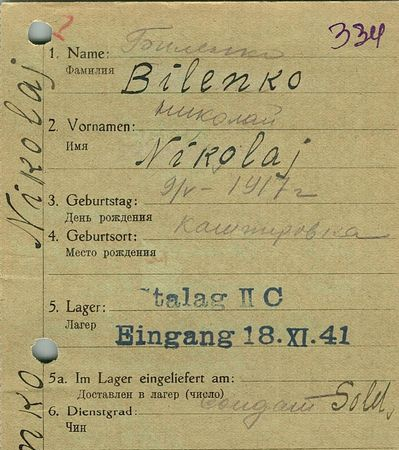 2
334
1. Name: Биленко
Фамилия
Bilenko
2. Vornamen: николай
Имя
Nikolaj
3. Geburtstag: 9/V - 1917 г
День рождения
4. Geburtsort: Каштировка
Место рождения
5. Lager: talag II C
Лагер
Eingang 18.XI.41
5a. Im Lager eingeliefert am:
Доставлен в лагер (число)
6. Dienstgrad: солдат Sold.
Чин
Nikolaj
nko